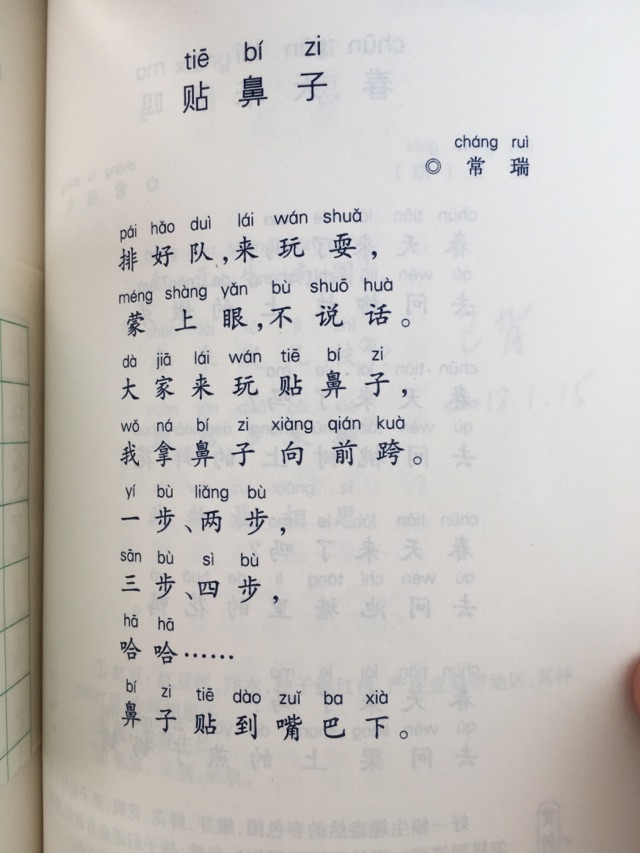 tiē bí zi
贴鼻子
cháng ruì
◎常瑞
pái hǎo duì lái wán shuǎ
排好队,来玩耍,
méng shàng yǎn bù shuō huà
蒙上眼,不说话。
dà jiā lái wán tiē bí zi
大家来玩贴鼻子,
wǒ ná bí zi xiàng qián kuà
我拿鼻子向前跨。
yí bù liǎng bù
一步、两步,
sān bù sì bù
三步、四步,
hā hā
哈哈……
bí zi tiē dào zuǐ ba xià
鼻子贴到嘴巴下。